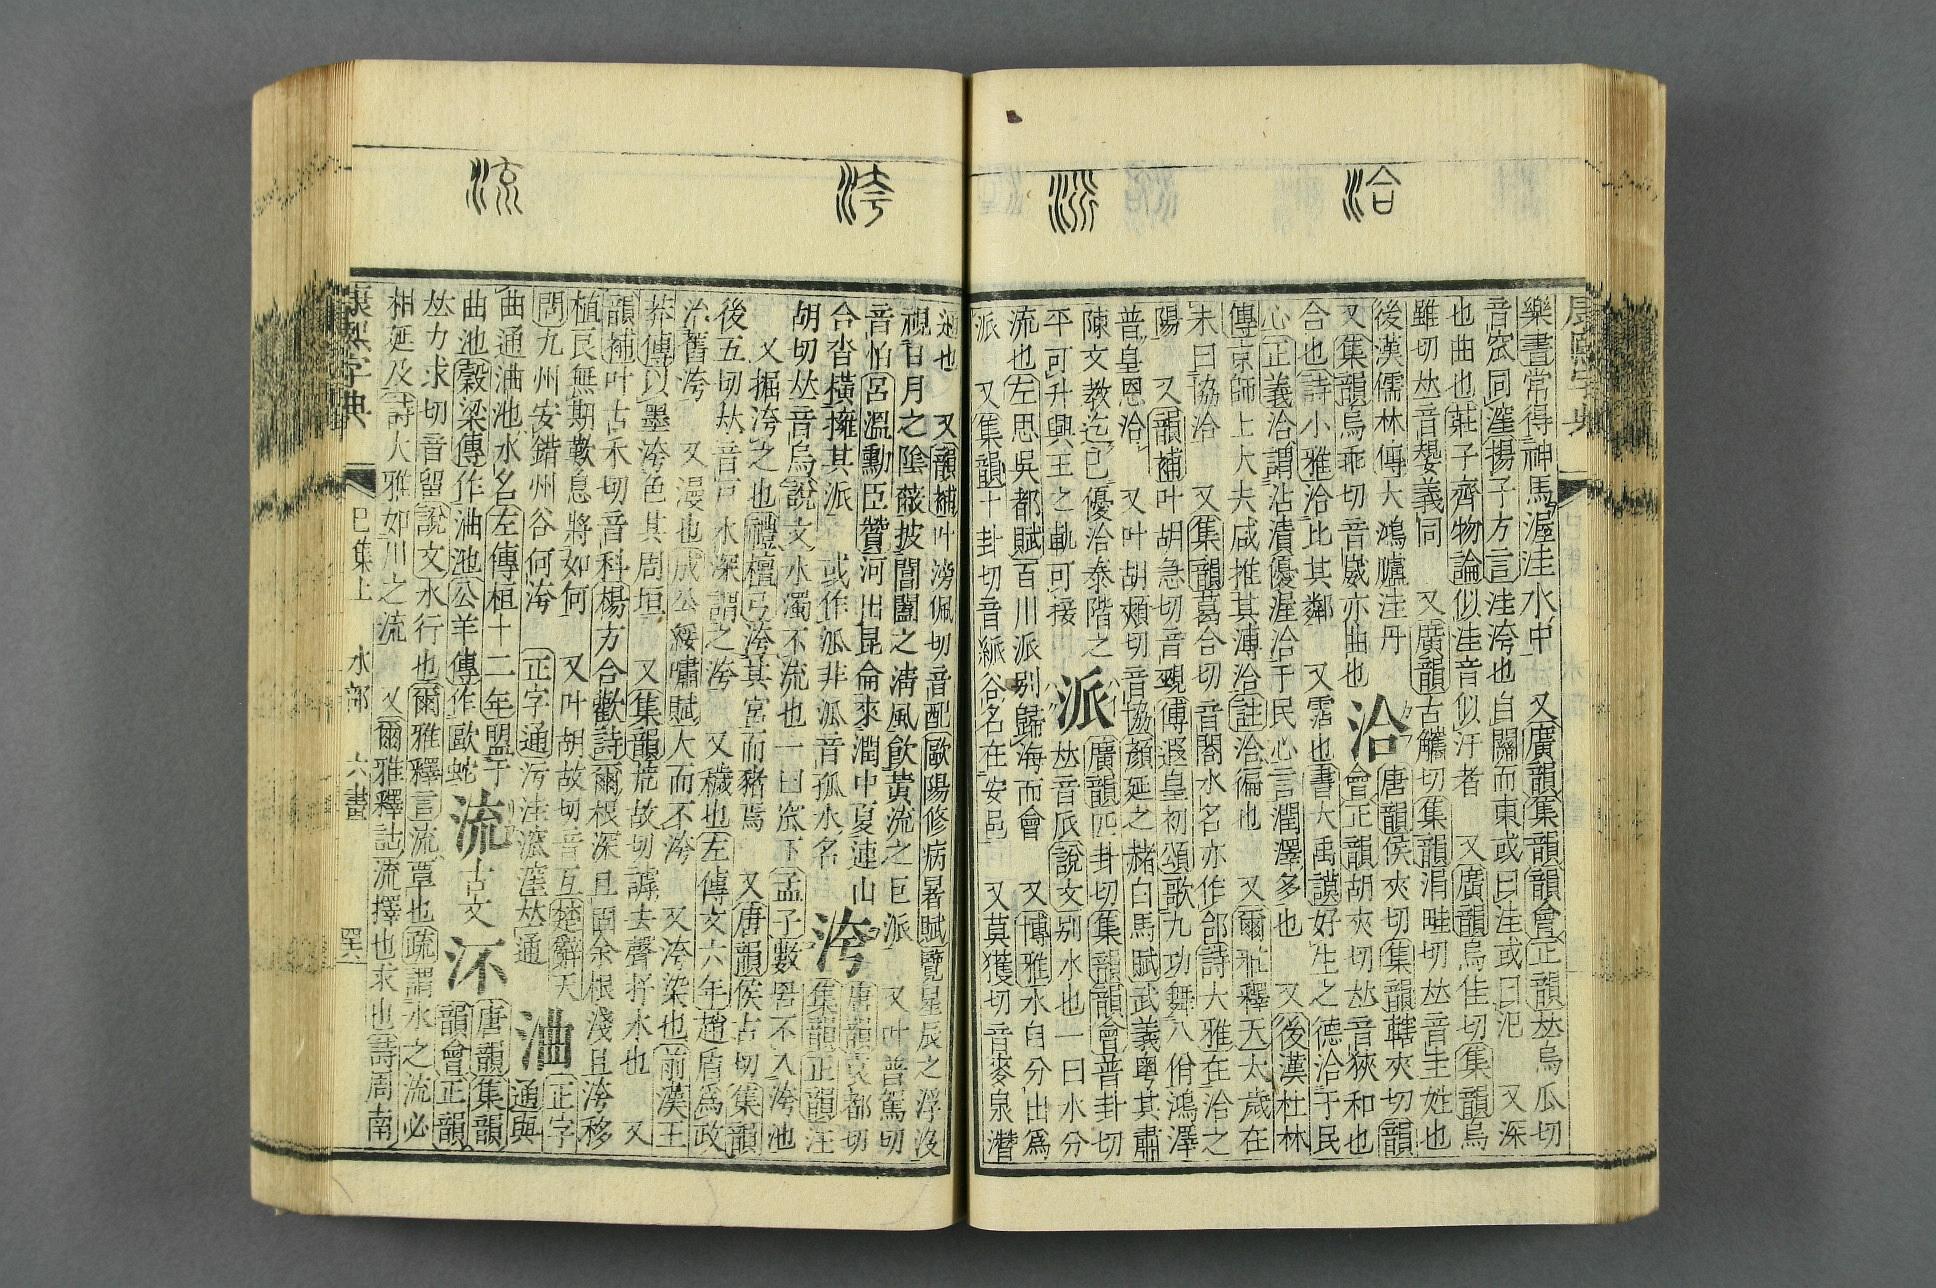 洽
派
洿
流
康熙字典
樂書常得神馬渥洼水中 又廣韻集韻韻會正韻𠀤烏瓜切
音窊同窪揚子方言洼洿也自關而東或曰洼或曰氾 又深
也曲也莊子齊物論似洼音似汙者 又廣韻烏佳切集韻烏
雖切𠀤音嫢義同 又廣韻古觿切集韻涓畦切𠀤音圭姓也
後漢儒林傳大鴻臚洼丹
又集韻烏乖切音崴亦曲也 洽 唐韻侯夾切集韻轄夾切韻
會正韻胡夾切𠀤音狹和也
合也詩小雅洽比其鄰 又霑也書大禹謨好生之德洽于民
心正義洽謂沾漬優渥洽于民心言潤澤多也 又後漢杜林
傳京師士大夫咸推其溥洽註洽徧也 又爾雅釋天太歲在
未曰協洽 又集韻葛合切音閤水名亦作郃詩大雅在洽之
陽 又韻補叶胡急切音覡傅遐皇初頌歌九功舞八佾鴻澤
普皇恩洽 又叶胡頰切音協顏延之赭白馬賦武義粵其肅
陳文教迄已優洽泰階之
平可升興王之軌可接 派 廣韻匹卦切集韻韻會普卦切
𠀤音𠂢說文別水也一曰水分
流也左思吳都賦百川派別歸海而會 又博雅水自分出爲
派 又集韻十卦切音紙谷名在安邑 又莫獲切音麥泉潛
通也 又韻補叶滂佩切音配歐陽修病暑賦覽星辰之浮沒
視日月之陰蔽披閶闔之淸風飮黃流之巨派 又叶普駕切
音怕呂溫勳臣贊河出昆侖來潤中夏連山
合沓橫擁其派 或作泒非泒音孤水名 洿 唐韻哀都切
集韻正韻汪
胡切𠀤音烏說文水濁不流也一曰窊下孟子數罟不入洿池
又掘洿之也禮檀弓洿其宮而豬焉 又唐韻侯古切集韻
後五切𠀤音戸水深謂之洿 又穢也左傳文六年趙盾爲政
治舊洿 又漫也成公綏嘯賦大而不洿 又洿染也前漢王
莽傳以墨洿色其周垣 又集韻荒故切謼去聲抒水也 又
韻補叶古禾切音科楊方合歡詩爾根深且固余根淺且洿移
植良無期歎息將如何 又叶胡故切音互楚辭天
問九州安錯州谷何洿 正字通污洼窊窪𠀤通 浀 正字
通與
曲通浀池水名左傳桓十二年盟于
曲池穀梁傳作浀池公羊傳作歐蛇 流 古文 㳅 唐韻集韻
韻會正韻
𠀤力求切音留說文水行也爾雅釋言流覃也疏謂水之流必
相延及詩大雅如川之流 又爾雅釋詁流擇也求也詩周南
康熙字典 巳集上 水部 六畫